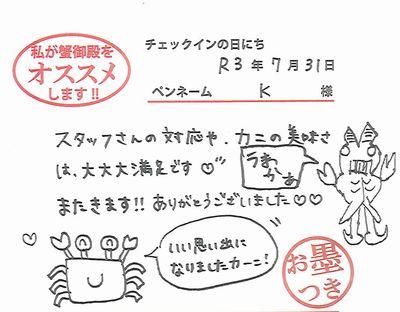 私が蟹御殿を
オススメ
します!!
チェックインの日にち
R3年7月31日
ペンネーム K 様
スタッフさんの対応や、カニの美味さ
は、大大大満足です♡
うまかぁ
またきます!! ありがとうございました♡♡
いい思い出に
なりましたカーニ!
お墨
つき